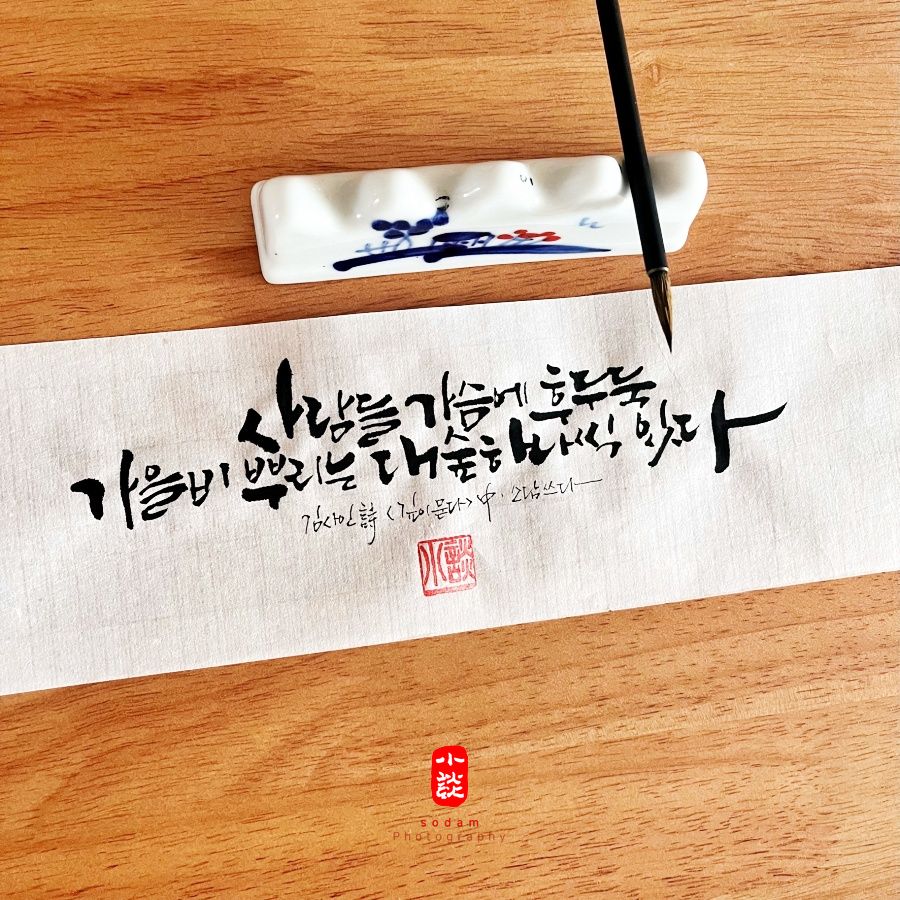 사람들 가슴에 후두둑
가을비 뿌리는 대숲 하나씩 있다
김사인 詩 <깊이 묻다> 中. 소담쓰다
小談
小談
sodam
Photography